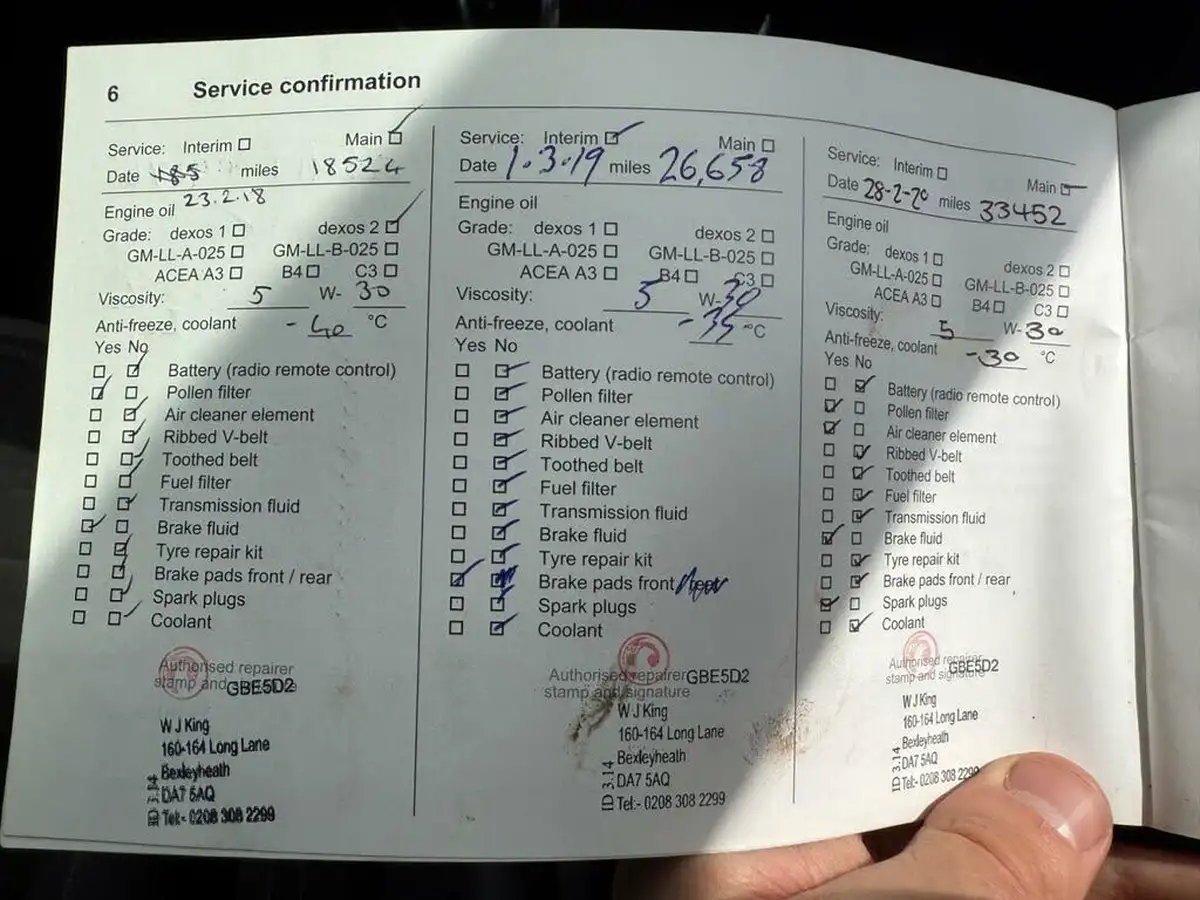 6 Service confirmation
Service: Interim Main
Date 185 miles 18524
23.2.18
Engine oil
Grade: dexos 1 dexos 2
GM-LL-A-025 GM-LL-B-025
ACEA A3 B4 C3
Viscosity: 5 W- 30
Anti-freeze, coolant - 40 °C
Yes No
Battery (radio remote control)
Pollen filter
Air cleaner element
Ribbed V-belt
Toothed belt
Fuel filter
Transmission fluid
Brake fluid
Tyre repair kit
Brake pads front / rear
Spark plugs
Coolant
Authorised repairer
stamp and GBE5D2
W J King
160-164 Long Lane
Bexleyheath
DA7 5AQ
Tel:- 0208 308 2299
ID 3.14
Service: Interim Main
Date 1.3.19 miles 26,658
Engine oil
Grade: dexos 1 dexos 2
GM-LL-A-025 GM-LL-B-025
ACEA A3 B4 C3
Viscosity: 5 W- 30
Anti-freeze, coolant -35 °C
Yes No
Battery (radio remote control)
Pollen filter
Air cleaner element
Ribbed V-belt
Toothed belt
Fuel filter
Transmission fluid
Brake fluid
Tyre repair kit
Brake pads front / rear
Spark plugs
Coolant
Authorised repairer GBE5D2
stamp and signature
W J King
160-164 Long Lane
Bexleyheath
DA7 5AQ
Tel:- 0208 308 2299
ID 3.14
Service: Interim Main
Date 28-2-20 miles 33452
Engine oil
Grade: dexos 1 dexos 2
GM-LL-A-025 GM-LL-B-025
ACEA A3 B4 C3
Viscosity: 5 W- 30
Anti-freeze, coolant -30 °C
Yes No
Battery (radio remote control)
Pollen filter
Air cleaner element
Ribbed V-belt
Toothed belt
Fuel filter
Transmission fluid
Brake fluid
Tyre repair kit
Brake pads front / rear
Spark plugs
Coolant
Authorised repairer GBE5D2
stamp and signature
W J King
160-164 Long Lane
Bexleyheath
DA7 5AQ
Tel:- 0208 308 2299
ID 3.14